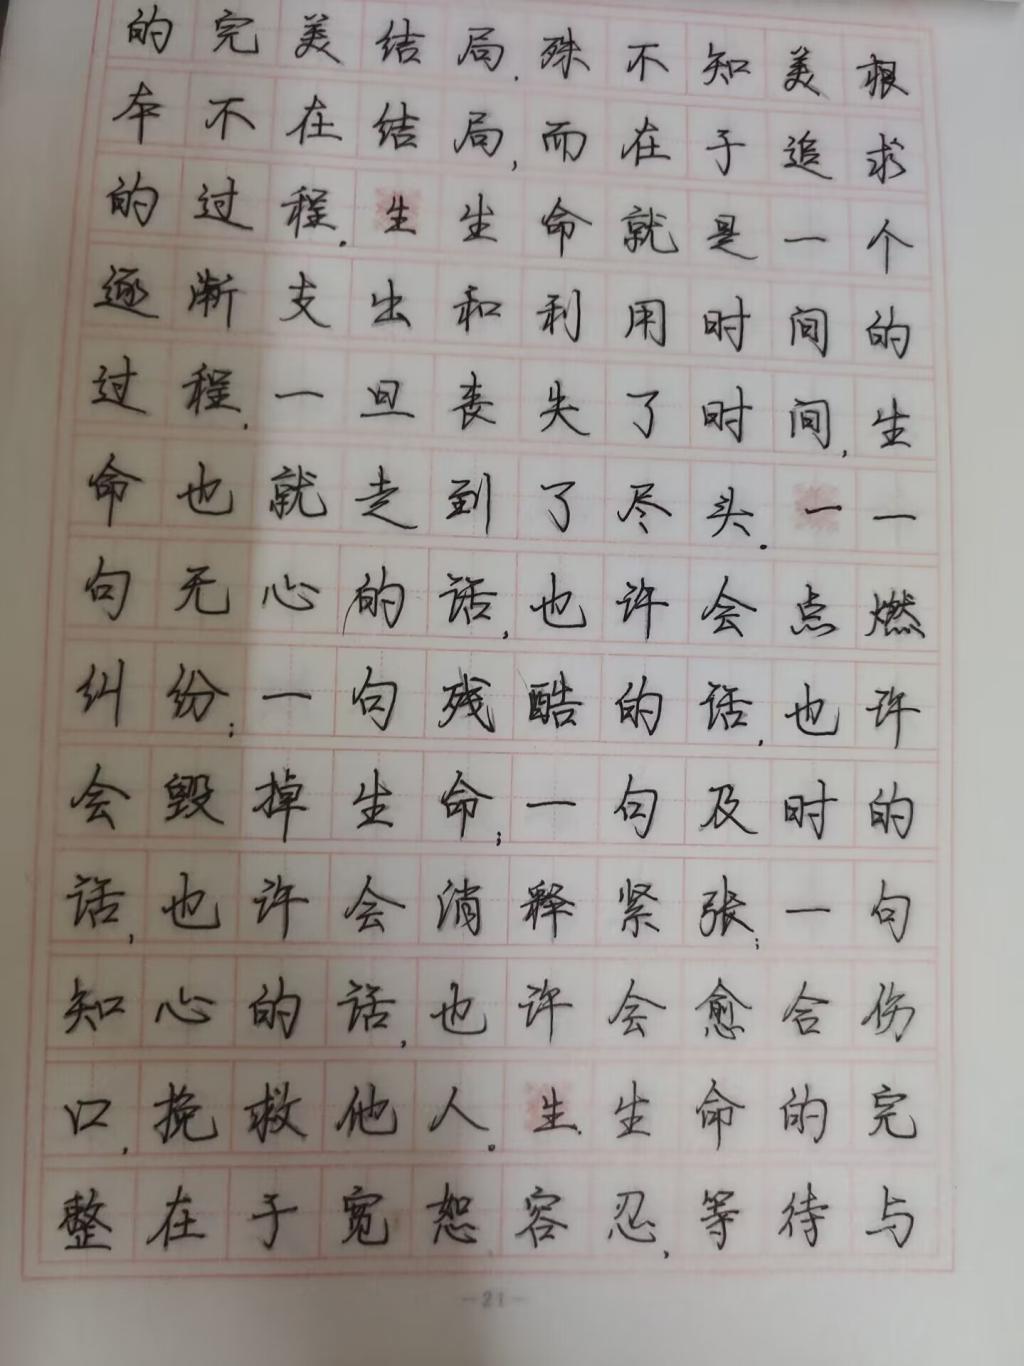 的完美结局.殊不知美根
本不在结局,而在于追求
的过程.生生命就是一个
逐渐支出和利用时间的
过程.一旦丧失了时间,生
命也就走到了尽头.一一
句无心的话,也许会点燃
纠纷;一句残酷的话,也许
会毁掉生命;一句及时的
话,也许会消释紧张;一句
知心的话,也许会愈合伤
口,挽救他人。生.生命的完
整在于宽恕容忍,等待与
-21-